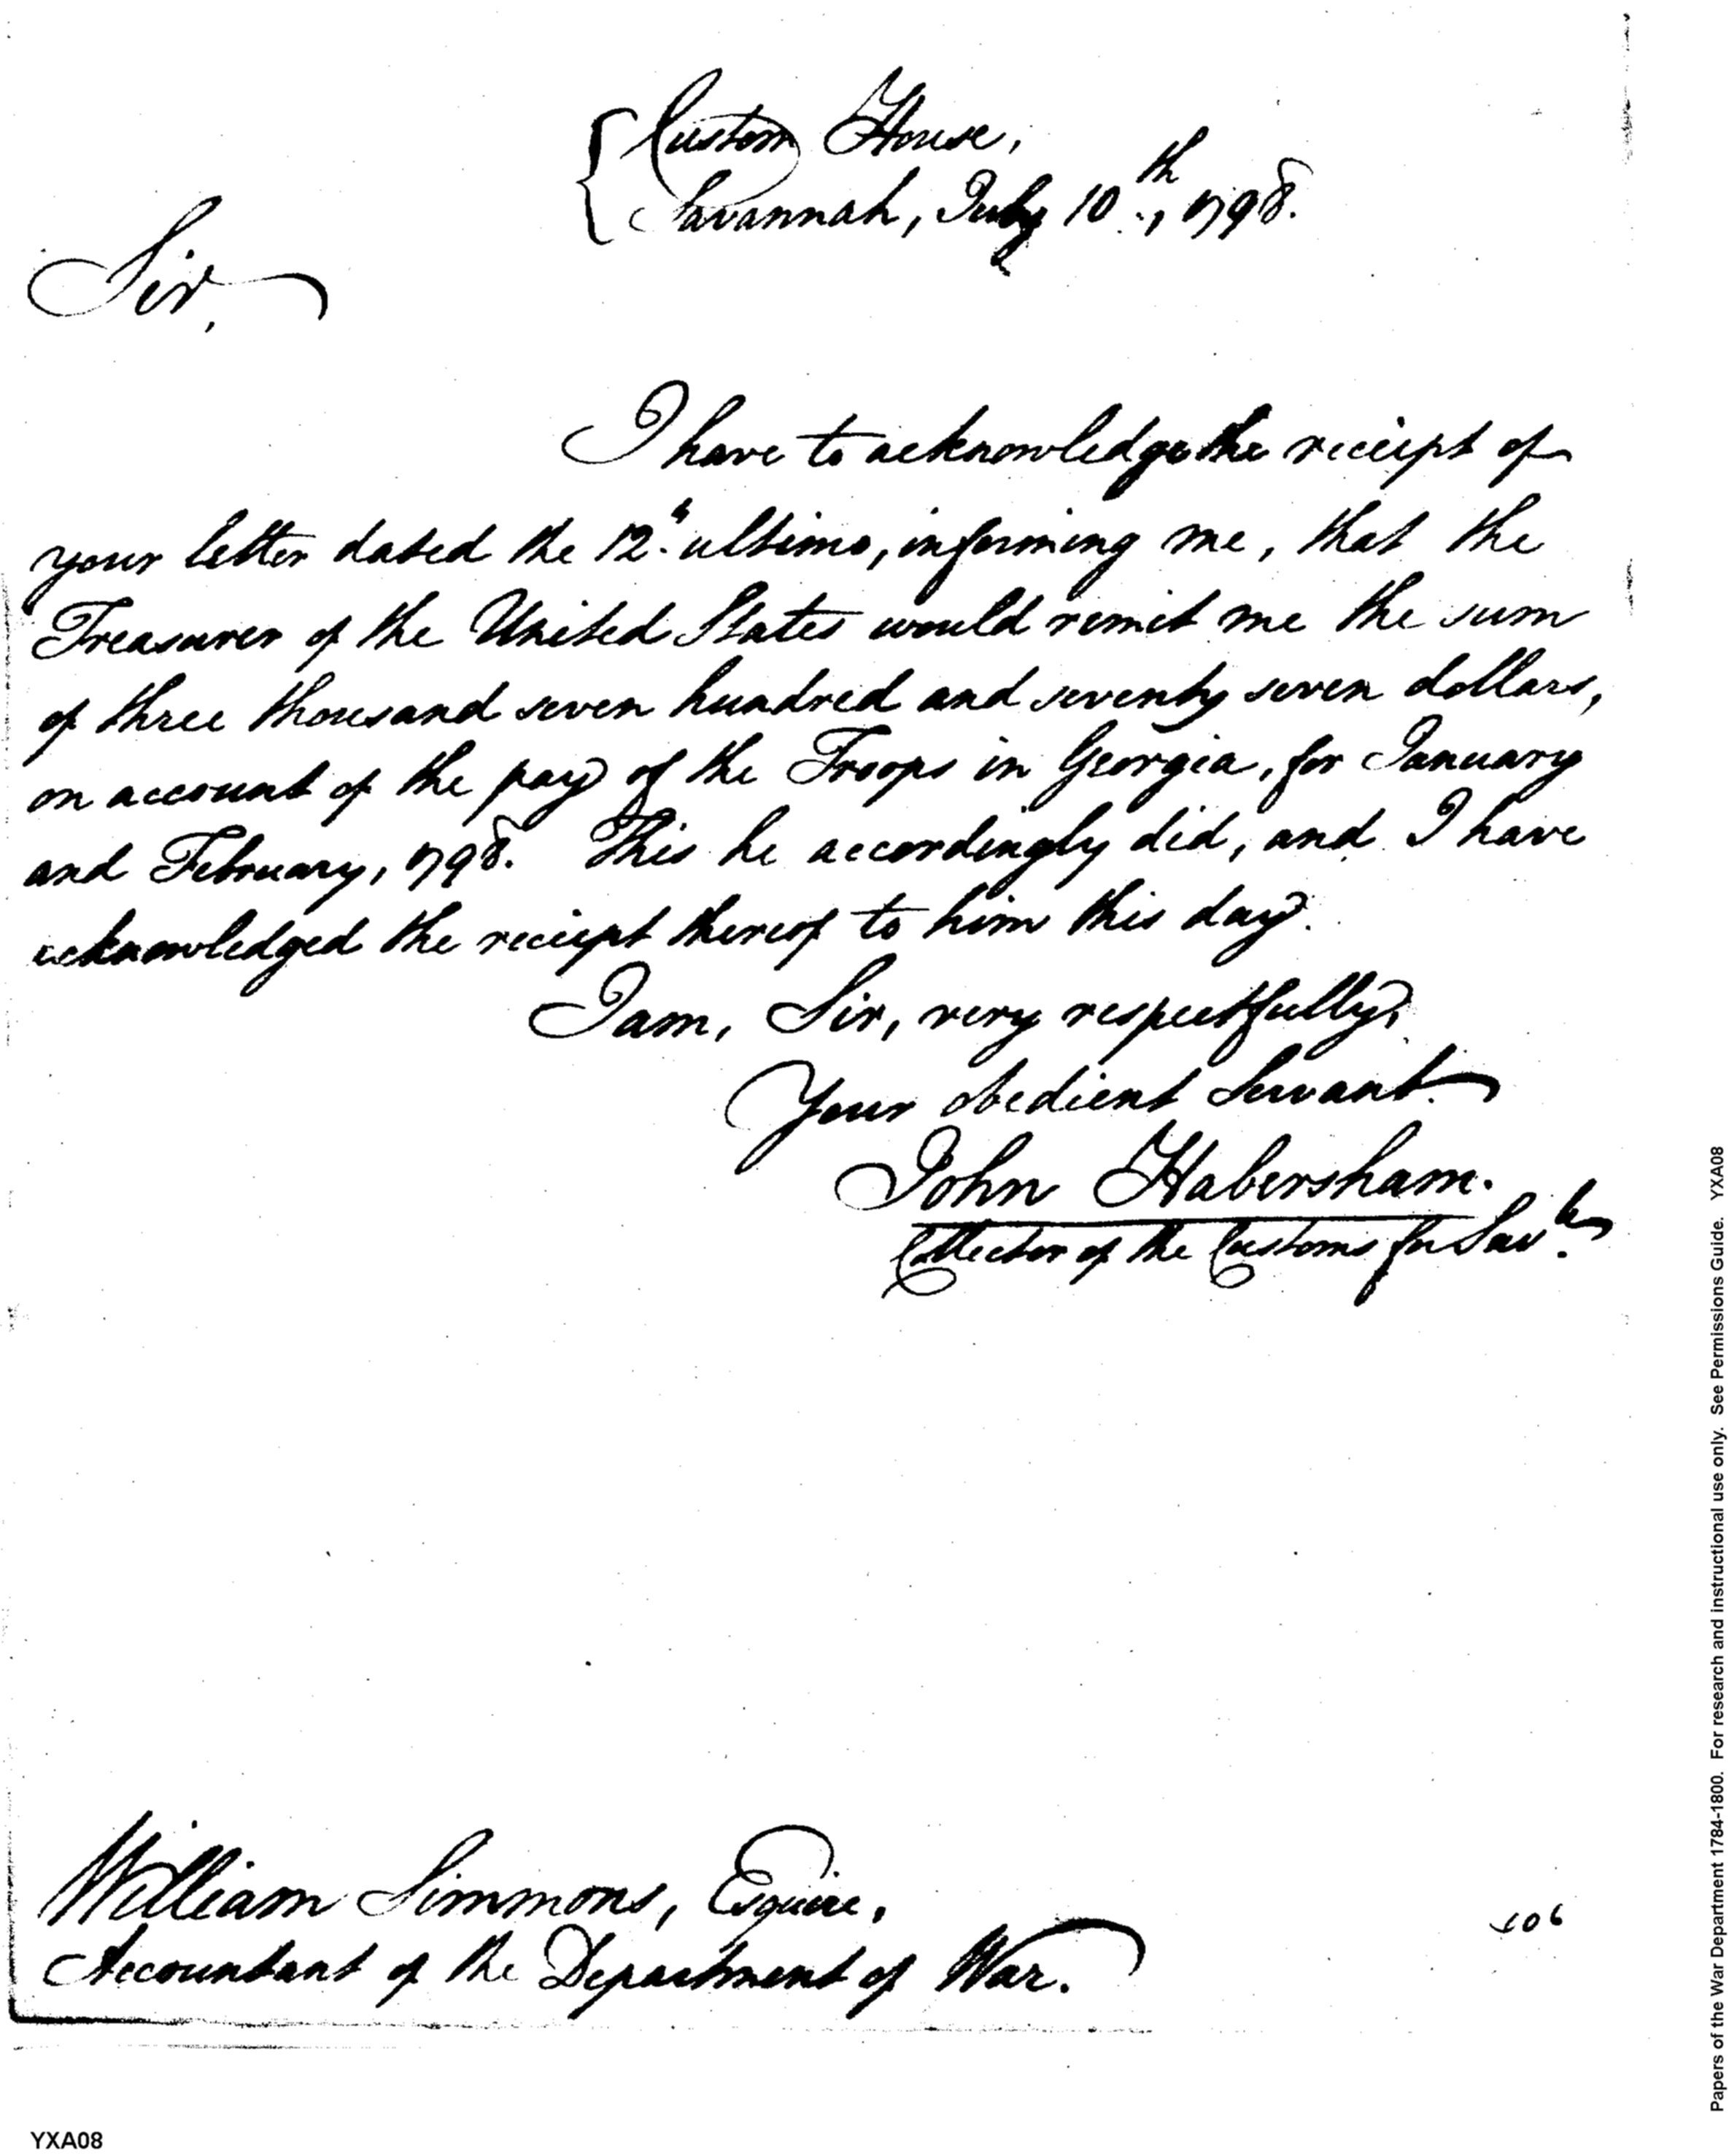 Custom House,
Savannah, July 10th, 1798.
Sir,
I have to acknowledge the receipt of
your letter dated the 12th ultimo, informing me, that the
Treasurer of the United States would remit me the sum
of three thousand seven hundred and seventy seven dollars,
on account of the pay of the Troops in Georgia, for January
and February, 1798. This he accordingly did, and I have
acknowledged the receipt thereof to him this day.
I am, Sir, very respectfully,
Your obedient Servant.
John Habersham.
Collector of the Customs for Savh.
William Simmons, Esquire,
Accountant of the Department of War.
Papers of the War Department 1784-1800. For research and instructional use only. See Permissions Guide. YXA08
YXA08